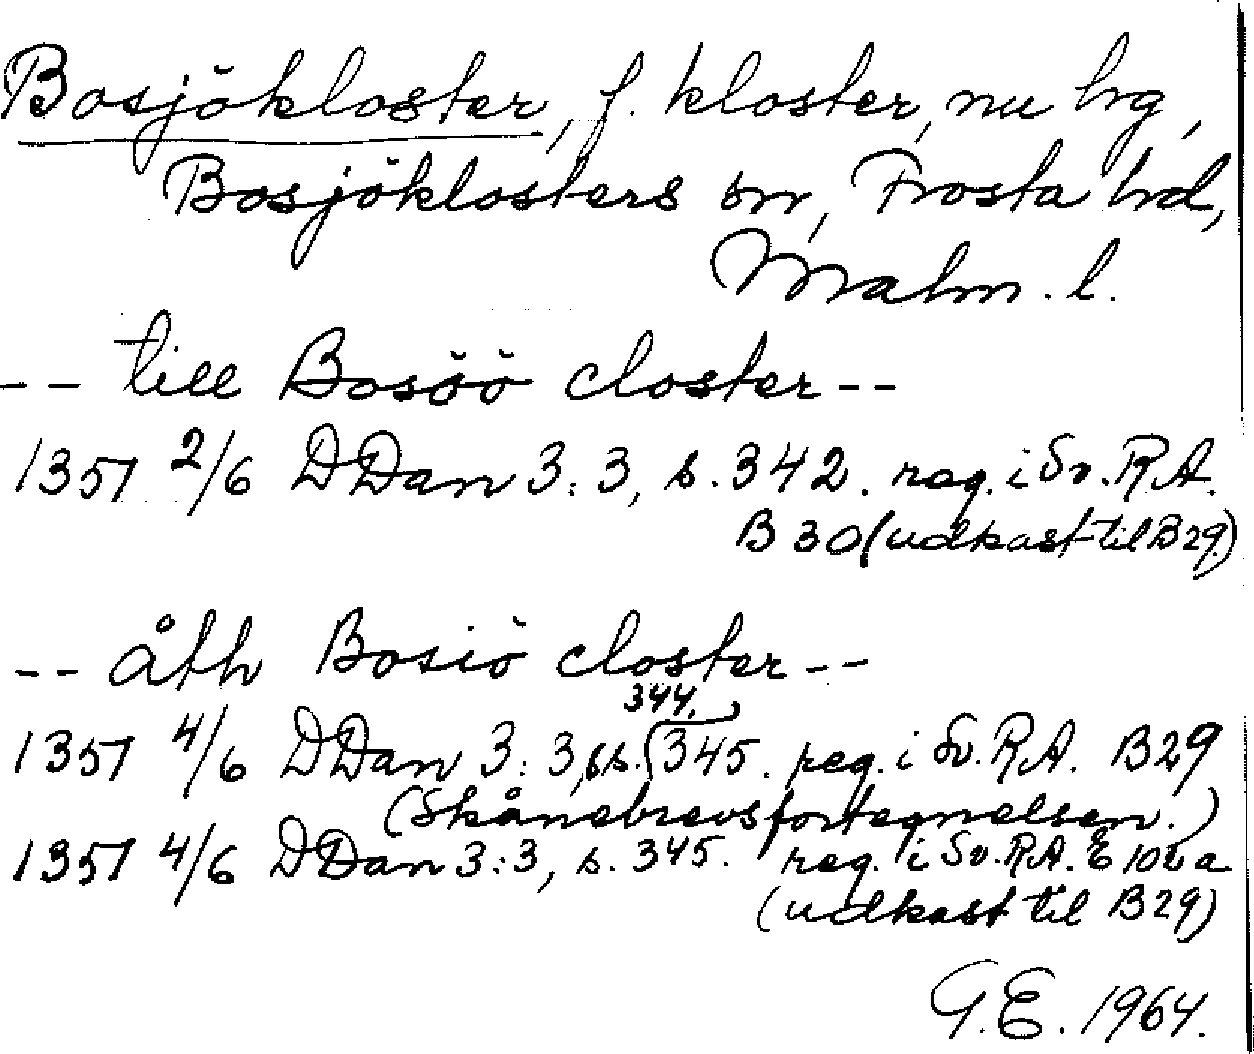 Bosjökloster, f. kloster, nu hg,
Bosjöklosters sn, Frosta hd,
Malm. l.
-- till Bosöö closter --
1351 2/6 DDan 3:3, s. 342. reg. i Sv. R.A.
B 30 (udkast til B29)
-- åth Bosiö closter --
344.
1351 4/6 DDan 3:3, s. 345. reg. i Sv. R.A. B29
(Skånebrevsfortegnelsen.)
1351 4/6 DDan 3:3, s. 345. reg. i Sv. R.A. E 106 a
(udkast til B29)
G.E. 1964.